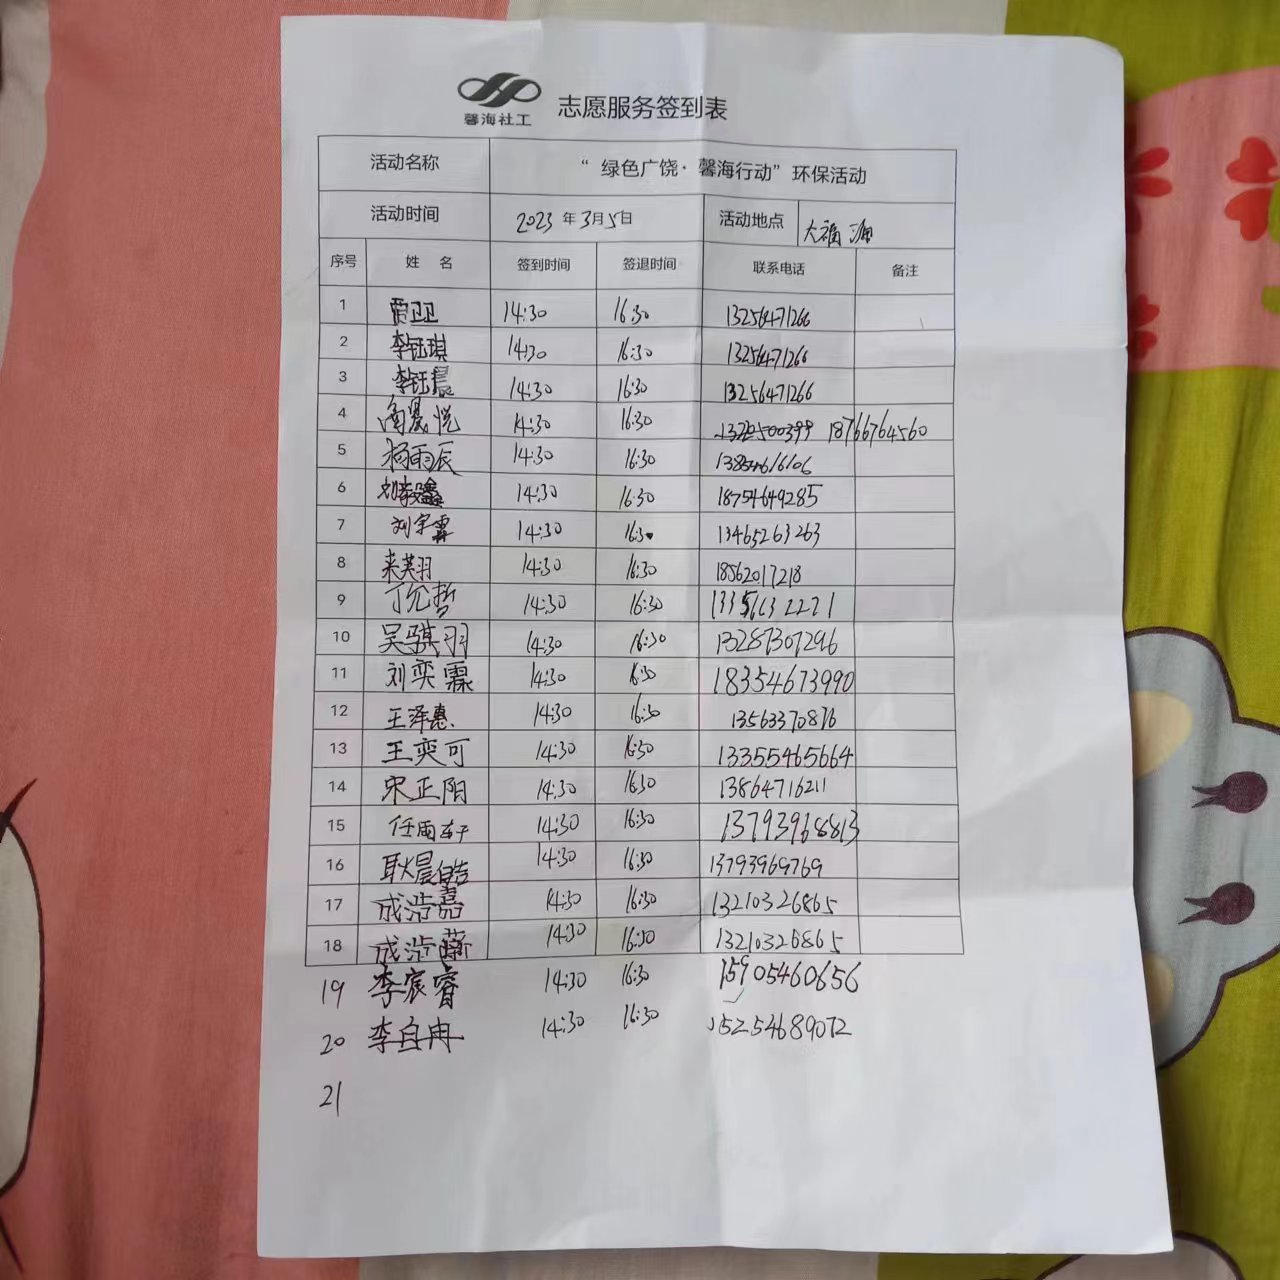 馨海社工 志愿服务签到表
活动名称 “绿色广饶·馨海行动”环保活动
活动时间 2023年3月5日 活动地点 大福源
序号 姓 名 签到时间 签退时间 联系电话 备注
1 贾卫卫 14:30 16:30 13256471266
2 李钰琪 14:30 16:30 13256471266
3 李钰晨 14:30 16:30 13256471266
4 晨悦 14:30 16:30 18766764560
5 杨雨辰 14:30 16:30
6 14:30 16:30 18754649285
7 刘宇霖 14:30 16:30 13465263263
8 来芙羽 14:30 16:30 18562017218
9 丁允哲 14:30 16:30 13356632271
10 吴骐羽 14:30 16:30 13287307296
11 刘奕霖 14:30 16:30 18354673990
12 王泽惠 14:30 16:30 13563370876
13 王奕可 14:30 16:30 13355465664
14 宋正阳 14:30 16:30 13864716211
15 任雨轩 14:30 16:30 13793968813
16 耿晨皓 14:30 16:30 13793969769
17 成浩嘉 14:30 16:30 13210326865
18 成浩 14:30 16:30 13210326865
19 李宸睿 14:30 16:30 15905460656
20 李自冉 14:30 16:30 15254689072
21